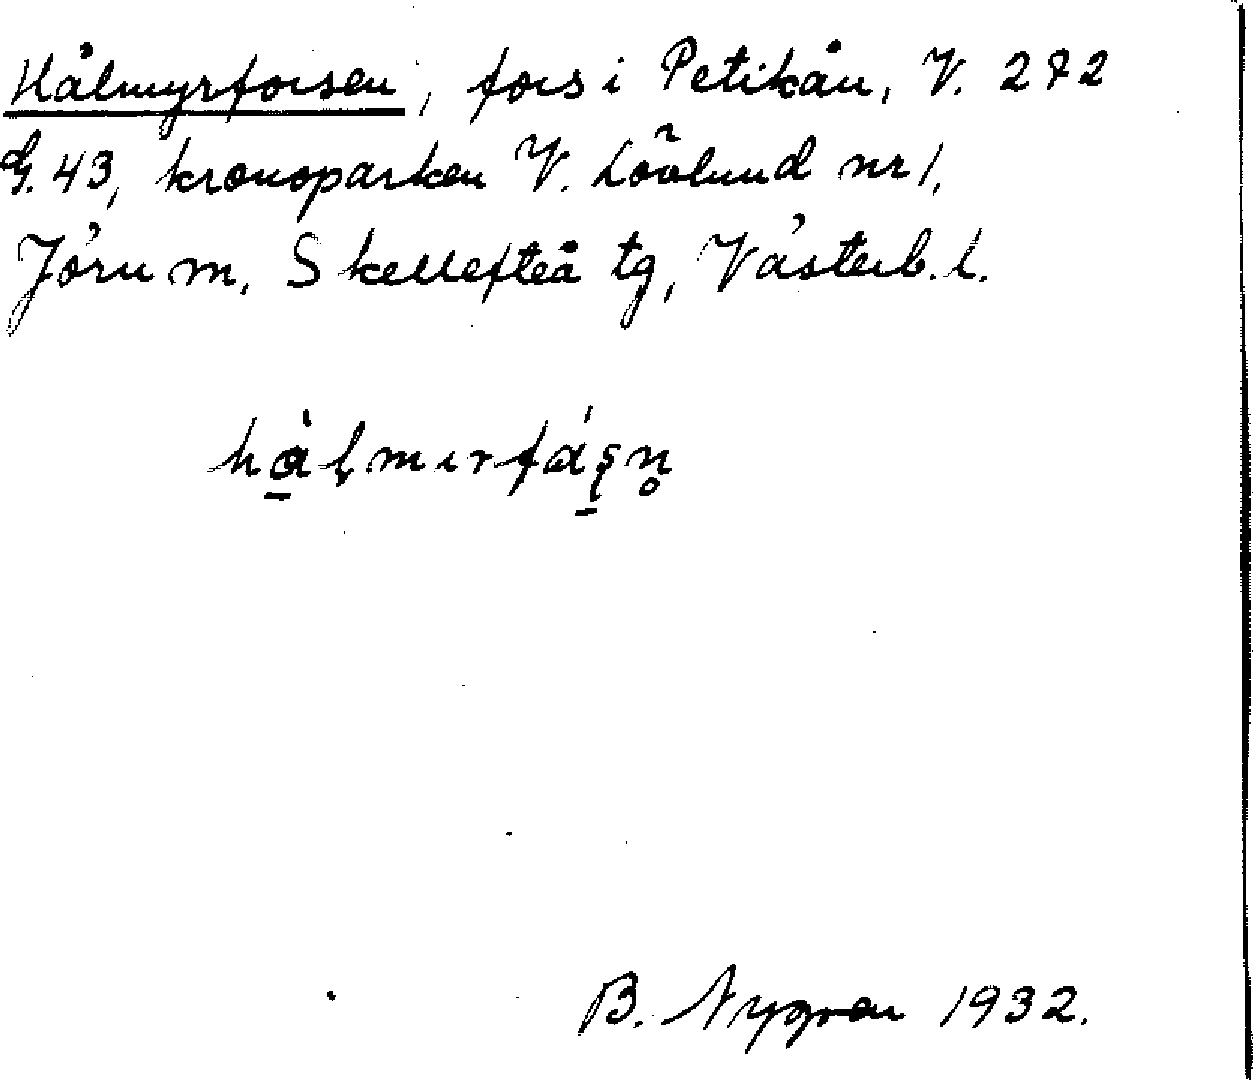 Hålmyrforsen, fors i Petikån, V. 272
G. 43, kronoparken V. Löölund nr 1,
Jörn m, Skellefteå tg, Västerb. l.
hålmirfásn
B. Nygren 1932.